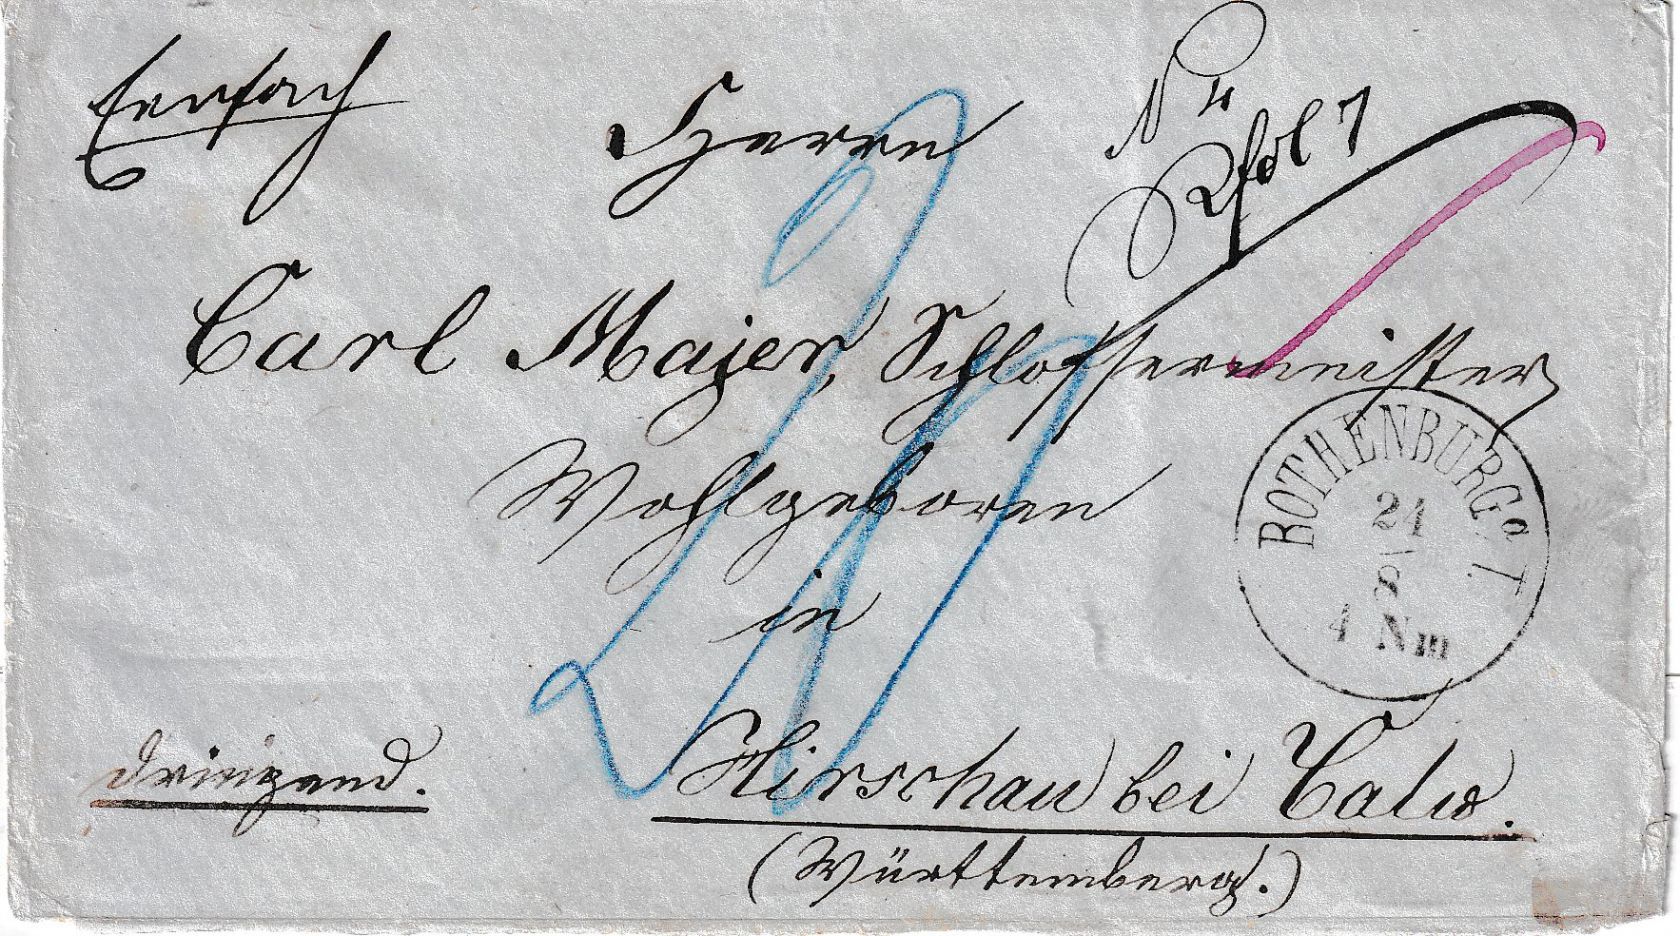 Einfach
Herrn
Carl Majer, Schlossermeister
Wohlgeboren
in
Hirschau bei Calw.
(Württemberg.)
dringend.
ROTHENBURG o T.
21
8
4 Nm